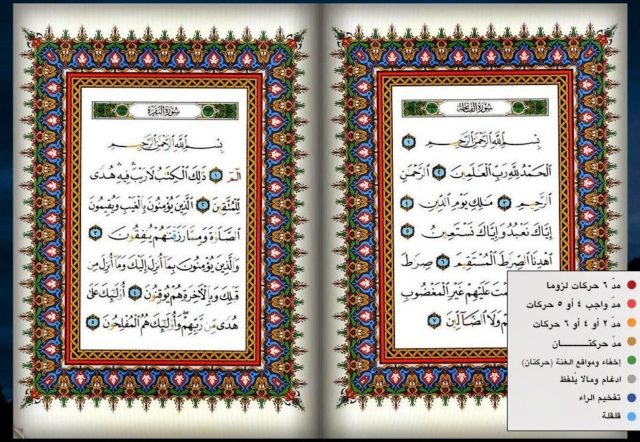 سُورَةُ الفَاتِحَة
بِسْمِ ٱللَّهِ ٱلرَّحْمَٰنِ ٱلرَّحِيمِ ١
ٱلْحَمْدُ لِلَّهِ رَبِّ ٱلْعَٰلَمِينَ ٢ ٱلرَّحْمَٰنِ
ٱلرَّحِيمِ ٣ مَٰلِكِ يَوْمِ ٱلدِّينِ ٤
إِيَّاكَ نَعْبُدُ وَإِيَّاكَ نَسْتَعِينُ ٥
ٱهْدِنَا ٱلصِّرَٰطَ ٱلْمُسْتَقِيمَ ٦ صِرَٰطَ
عَلَيْهِمْ غَيْرِ ٱلْمَغْضُوبِ
وَلَا ٱلضَّآلِّينَ ٧
سُورَةُ البَقَرَة
بِسْمِ ٱللَّهِ ٱلرَّحْمَٰنِ ٱلرَّحِيمِ
الٓمٓ ١ ذَٰلِكَ ٱلْكِتَٰبُ لَا رَيْبَ فِيهِ هُدًى
لِّلْمُتَّقِينَ ٢ ٱلَّذِينَ يُؤْمِنُونَ بِٱلْغَيْبِ وَيُقِيمُونَ
ٱلصَّلَوٰةَ وَمِمَّا رَزَقْنَٰهُمْ يُنفِقُونَ ٣
وَٱلَّذِينَ يُؤْمِنُونَ بِمَآ أُنزِلَ إِلَيْكَ وَمَآ أُنزِلَ مِن
قَبْلِكَ وَبِٱلْأَخِرَةِ هُمْ يُوقِنُونَ ٤ أُو۟لَٰٓئِكَ عَلَىٰ
هُدًى مِّن رَّبِّهِمْ وَأُو۟لَٰٓئِكَ هُمُ ٱلْمُفْلِحُونَ ٥
مدّ ٦ حركات لزوما
مدّ واجب ٤ أو ٥ حركات
مدّ ٢ أو ٤ أو ٦ حركات
مدّ حركتــــــــان
إخفاء ومواقع الغنة (حركتان)
ادغام ومالا يُلفظ
تفخيم الراء
قلقلة